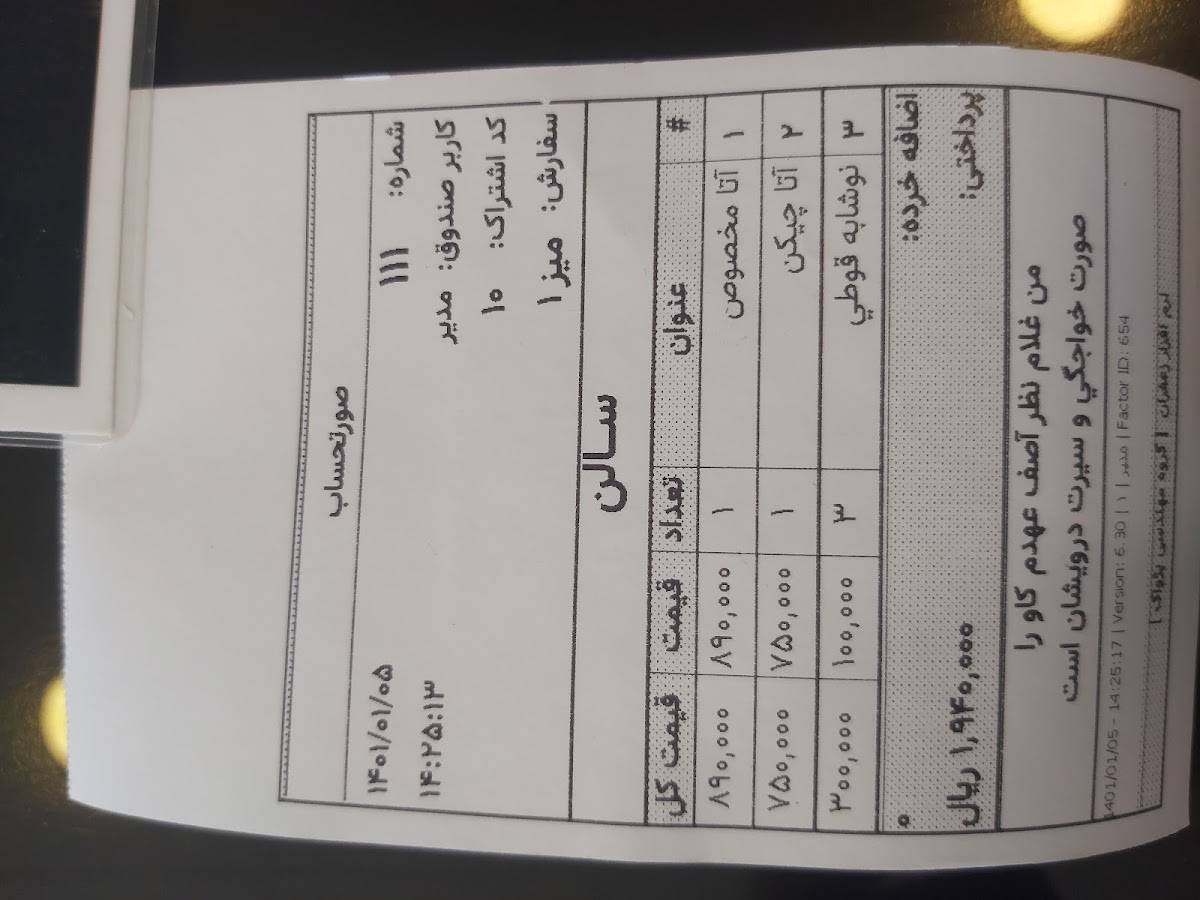 صورتحساب
شماره: ۱۱۱ ۱۴۰۱/۰۱/۰۵
کاربر صندوق: مدیر ۱۴:۲۵:۱۳
کد اشتراک: ۱۰
سفارش: میز ۱
سالن
# عنوان تعداد قیمت قیمت کل
۱ آتا مخصوص ۱ ۸۹۰,۰۰۰ ۸۹۰,۰۰۰
۲ آتا چیکن ۱ ۷۵۰,۰۰۰ ۷۵۰,۰۰۰
۳ نوشابه قوطي ۳ ۱۰۰,۰۰۰ ۳۰۰,۰۰۰
اضافه خرده: ۰
پرداختی: ۱,۹۴۰,۰۰۰ ریال
من غلام نظر آصف عهدم کاو را
صورت خواجگي و سیرت درویشان است
1401/01/05 - 14:25:17 | Version: 6.30 | ۱ | مدیر | Factor ID: 654
نرم افزار زعفران [ گروه مهندسی پژواک ]